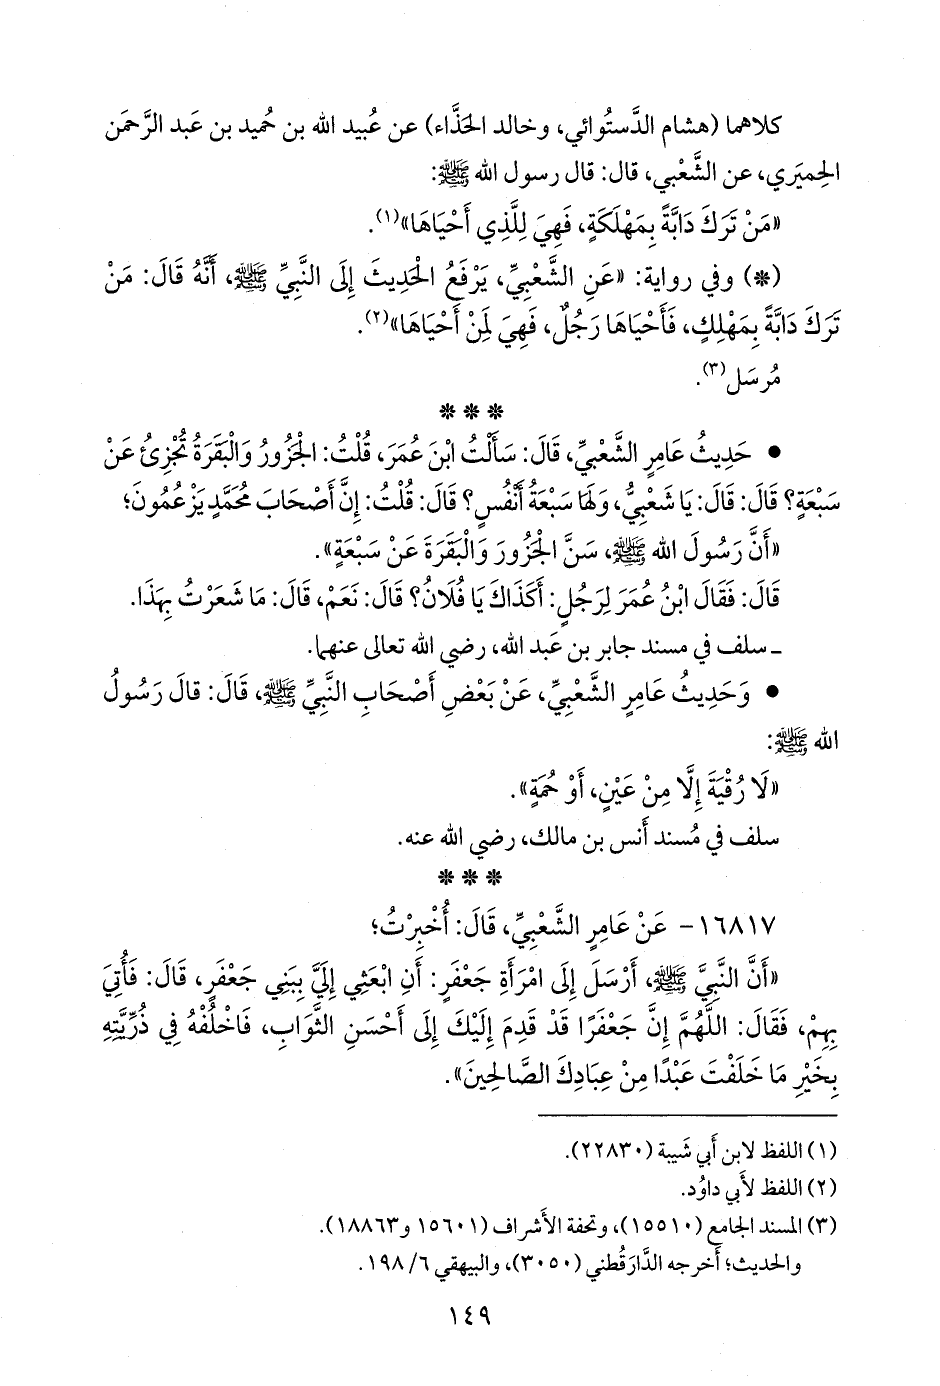 كلاهما (هشام الدَّستُوائي، وخالد الحَذَّاء) عن عُبيد الله بن حُميد بن عَبد الرَّحمَن
الحِميَري، عن الشَّعْبي، قال: قال رسول الله ﷺ:
«مَنْ تَرَكَ دَابَّةً بِمَهْلَكَةٍ، فَهِيَ لِلَّذِي أَحْيَاهَا»(١).
(*) وفي رواية: «عَنِ الشَّعْبِيِّ، يَرْفَعُ الْحَدِيثَ إِلَى النَّبِيِّ ﷺ، أَنَّهُ قَالَ: مَنْ
تَرَكَ دَابَّةً بِمَهْلِكٍ، فَأَحْيَاهَا رَجُلٌ، فَهِيَ لِمَنْ أَحْيَاهَا»(٢).
مُرسَل(٣).
* * *
• حَدِيثُ عَامِرٍ الشَّعْبِيِّ، قَالَ: سَأَلْتُ ابْنَ عُمَرَ، قُلْتُ: الْجَزُورُ وَالْبَقَرَةُ تُجْزِئُ عَنْ
سَبْعَةٍ؟ قَالَ: قَالَ: يَا شَعْبِيُّ، وَلَهَا سَبْعَةُ أَنْفُسٍ؟ قَالَ: قُلْتُ: إِنَّ أَصْحَابَ مُحَمَّدٍ يَزْعُمُونَ؛
«أَنَّ رَسُولَ الله ﷺ، سَنَّ الْجَزُورَ وَالْبَقَرَةَ عَنْ سَبْعَةٍ».
قَالَ: فَقَالَ ابْنُ عُمَرَ لِرَجُلٍ: أَكَذَاكَ يَا فُلَانُ؟ قَالَ: نَعَمْ، قَالَ: مَا شَعَرْتُ بِهَذَا.
ـ سلف في مسند جابر بن عَبد الله، رضي الله تعالى عنهما.
• وَحَدِيثُ عَامِرٍ الشَّعْبِيِّ، عَنْ بَعْضِ أَصْحَابِ النَّبِيِّ ﷺ، قَالَ: قالَ رَسُولُ
الله ﷺ:
«لَا رُقْيَةَ إِلَّا مِنْ عَيْنٍ، أَوْ حُمَةٍ».
سلف في مُسند أَنس بن مالك، رضي الله عنه.
* * *
١٦٨١٧- عَنْ عَامِرٍ الشَّعْبِيِّ، قَالَ: أُخْبِرْتُ؛
«أَنَّ النَّبِيَّ ﷺ، أَرْسَلَ إِلَى امْرَأَةِ جَعْفَرٍ: أَنِ ابْعَثِي إِلَيَّ بِبَنِي جَعْفَرٍ، قَالَ: فَأُتِيَ
بِهِمْ، فَقَالَ: اللَّهُمَّ إِنَّ جَعْفَرًا قَدْ قَدِمَ إِلَيْكَ إِلَى أَحْسَنِ الثَّوَابِ، فَاخْلُفْهُ فِي ذُرِّيَّتِهِ
بِخَيْرِ مَا خَلَفْتَ عَبْدًا مِنْ عِبَادِكَ الصَّالِحِينَ».
(١) اللفظ لابن أَبي شَيبة (٢٢٨٣٠).
(٢) اللفظ لأَبي داوُد.
(٣) المسند الجامع (١٥٥١٠)، وتحفة الأَشراف (١٥٦٠١ و١٨٨٦٣).
والحديث؛ أَخرجه الدَّارَقُطني (٣٠٥٠)، والبيهقي ٦/ ١٩٨.
١٤٩